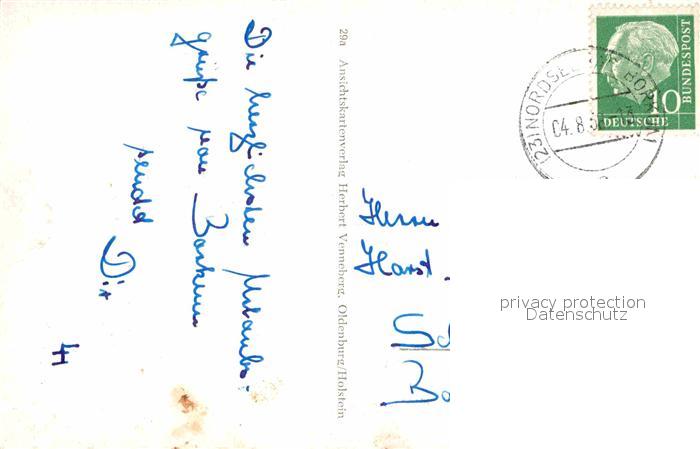 Die herzlichsten Urlaubs-
grüße von Borkum
sendet
Dir
29a Ansichtskartenverlag Herbert Venneberg, Oldenburg/Holstein
DEUTSCHE
BUNDESPOST
10
(23) NORDSEE
04.8.
Herrn
Horst
privacy protection
Datenschutz